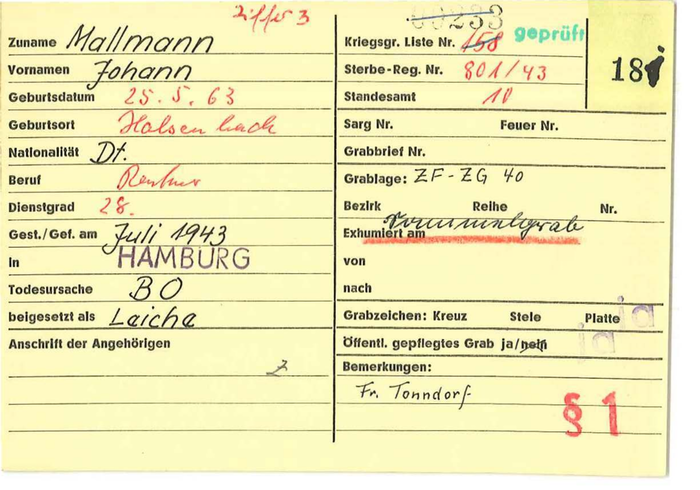 Ziffer 3
Zuname Mallmann
Vornamen Johann
Geburtsdatum 25. 5. 63
Geburtsort Halsenbach
Nationalität Dt.
Beruf Rentner
Dienstgrad 28.
Gest./Gef. am Juli 1943
in HAMBURG
Todesursache BO
beigesetzt als Leiche
Anschrift der Angehörigen
00233
Kriegsgr. Liste Nr. 158 geprüft
Sterbe-Reg. Nr. 801/43
Standesamt 10
Sarg Nr. Feuer Nr.
Grabbrief Nr.
Grablage: ZF-ZG 40
Bezirk Reihe Nr.
Exhumiert am Sammelgrab
von
nach
Grabzeichen: Kreuz Stele Platte ja
Öffentl. gepflegtes Grab ja/nein ja
Bemerkungen:
Fr. Tonndorf
§ 1